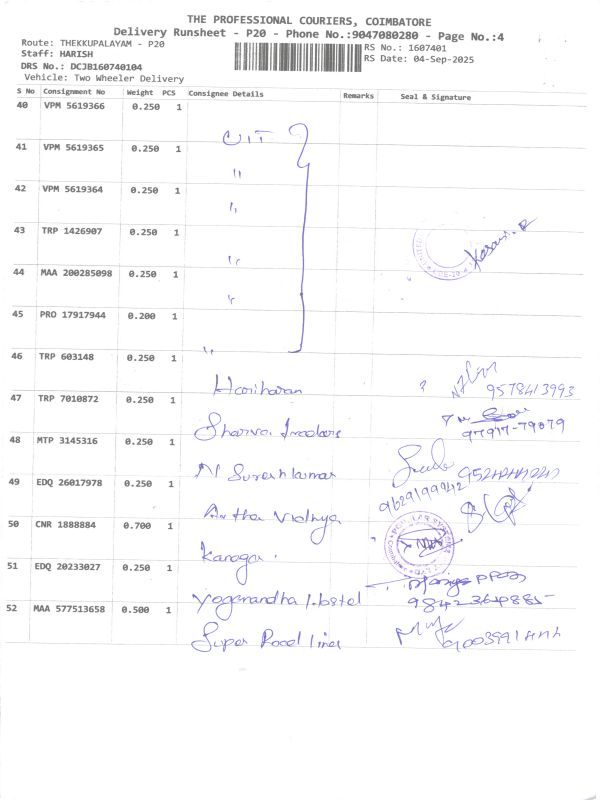 THE PROFESSIONAL COURIERS, COIMBATORE
Delivery Runsheet - P20 - Phone No.:9047080280 - Page No.:4
Route: THEKKUPALAYAM - P20
RS No.: 1607401
Staff: HARISH
RS Date: 04-Sep-2025
DRS No.: DCJB160740104
Vehicle: Two Wheeler Delivery
S No Consignment No Weight PCS Consignee Details Remarks Seal & Signature
40 VPM 5619366 0.250 1
CUIT
41 VPM 5619365 0.250 1
"
42 VPM 5619364 0.250 1
"
43 TRP 1426907 0.250 1
"
44 MAA 200285098 0.250 1
"
45 PRO 17917944 0.200 1
"
46 TRP 603148 0.250 1
Hariharan ? 9578413993
47 TRP 7010872 0.250 1
Sharva Traders 97917-79879
48 MTP 3145316 0.250 1
N Suresh kumar
49 EDQ 26017978 0.250 1
9629199942
Artha Vidhya
50 CNR 1888884 0.700 1
Kanagar
51 EDQ 20233027 0.250 1
Yoganandha Hostel
52 MAA 577513658 0.500 1
Super Road lines